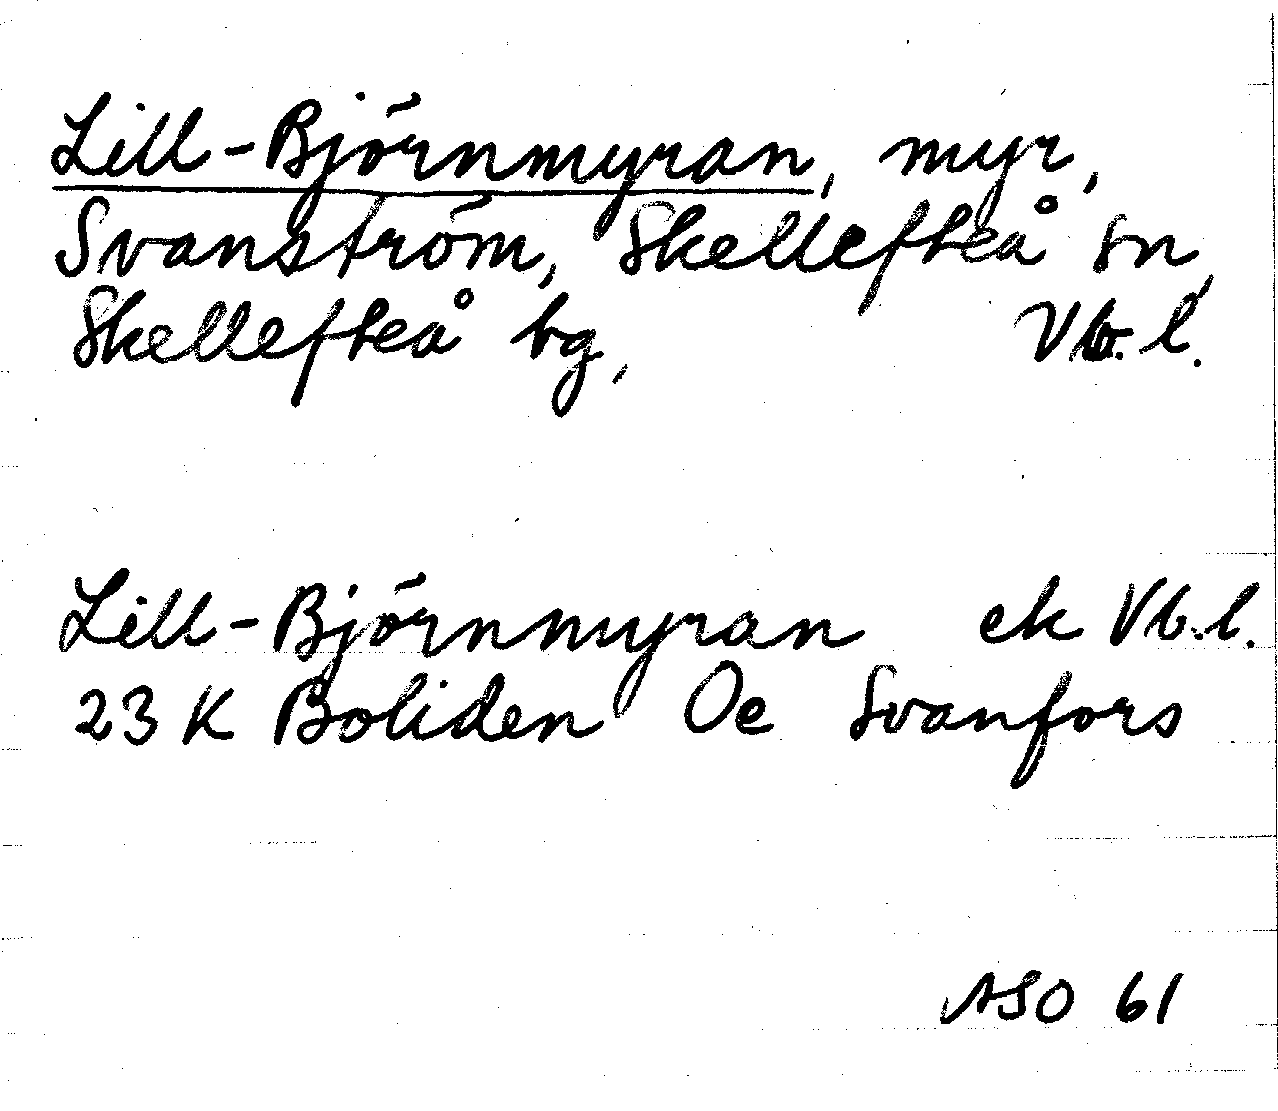 Lill-Björnmyran, myr,
Svanström, Skellefteå sn,
Skellefteå bg, Vb. l.
Lill-Björnmyran ek Vb. l.
23 K Boliden Oe Svanfors
ASO 61